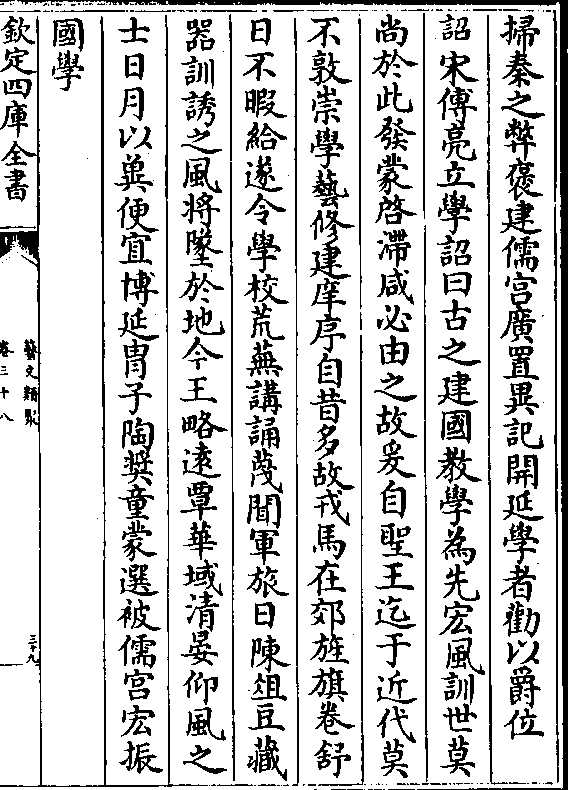 掃秦之弊褒建儒宫廣置異記開延學者勸以爵位
詔宋傅亮立學詔曰古之建國教學為先宏風訓世莫
尚於此發蒙啓滯咸必由之故爰自聖王迄于近代莫
不敦崇學藝修建庠序自昔多故戎馬在郊旌旗卷舒
日不暇給遂令學校荒蕪講誦蔑聞軍旅日陳俎豆藏
器訓誘之風將墜於地今王略逺覃華域清晏仰風之
士日月以兾便宜博延胄子陶奬童蒙選被儒宫宏振
國學
欽定四庫全書
藝文類聚
卷三十八
三十九